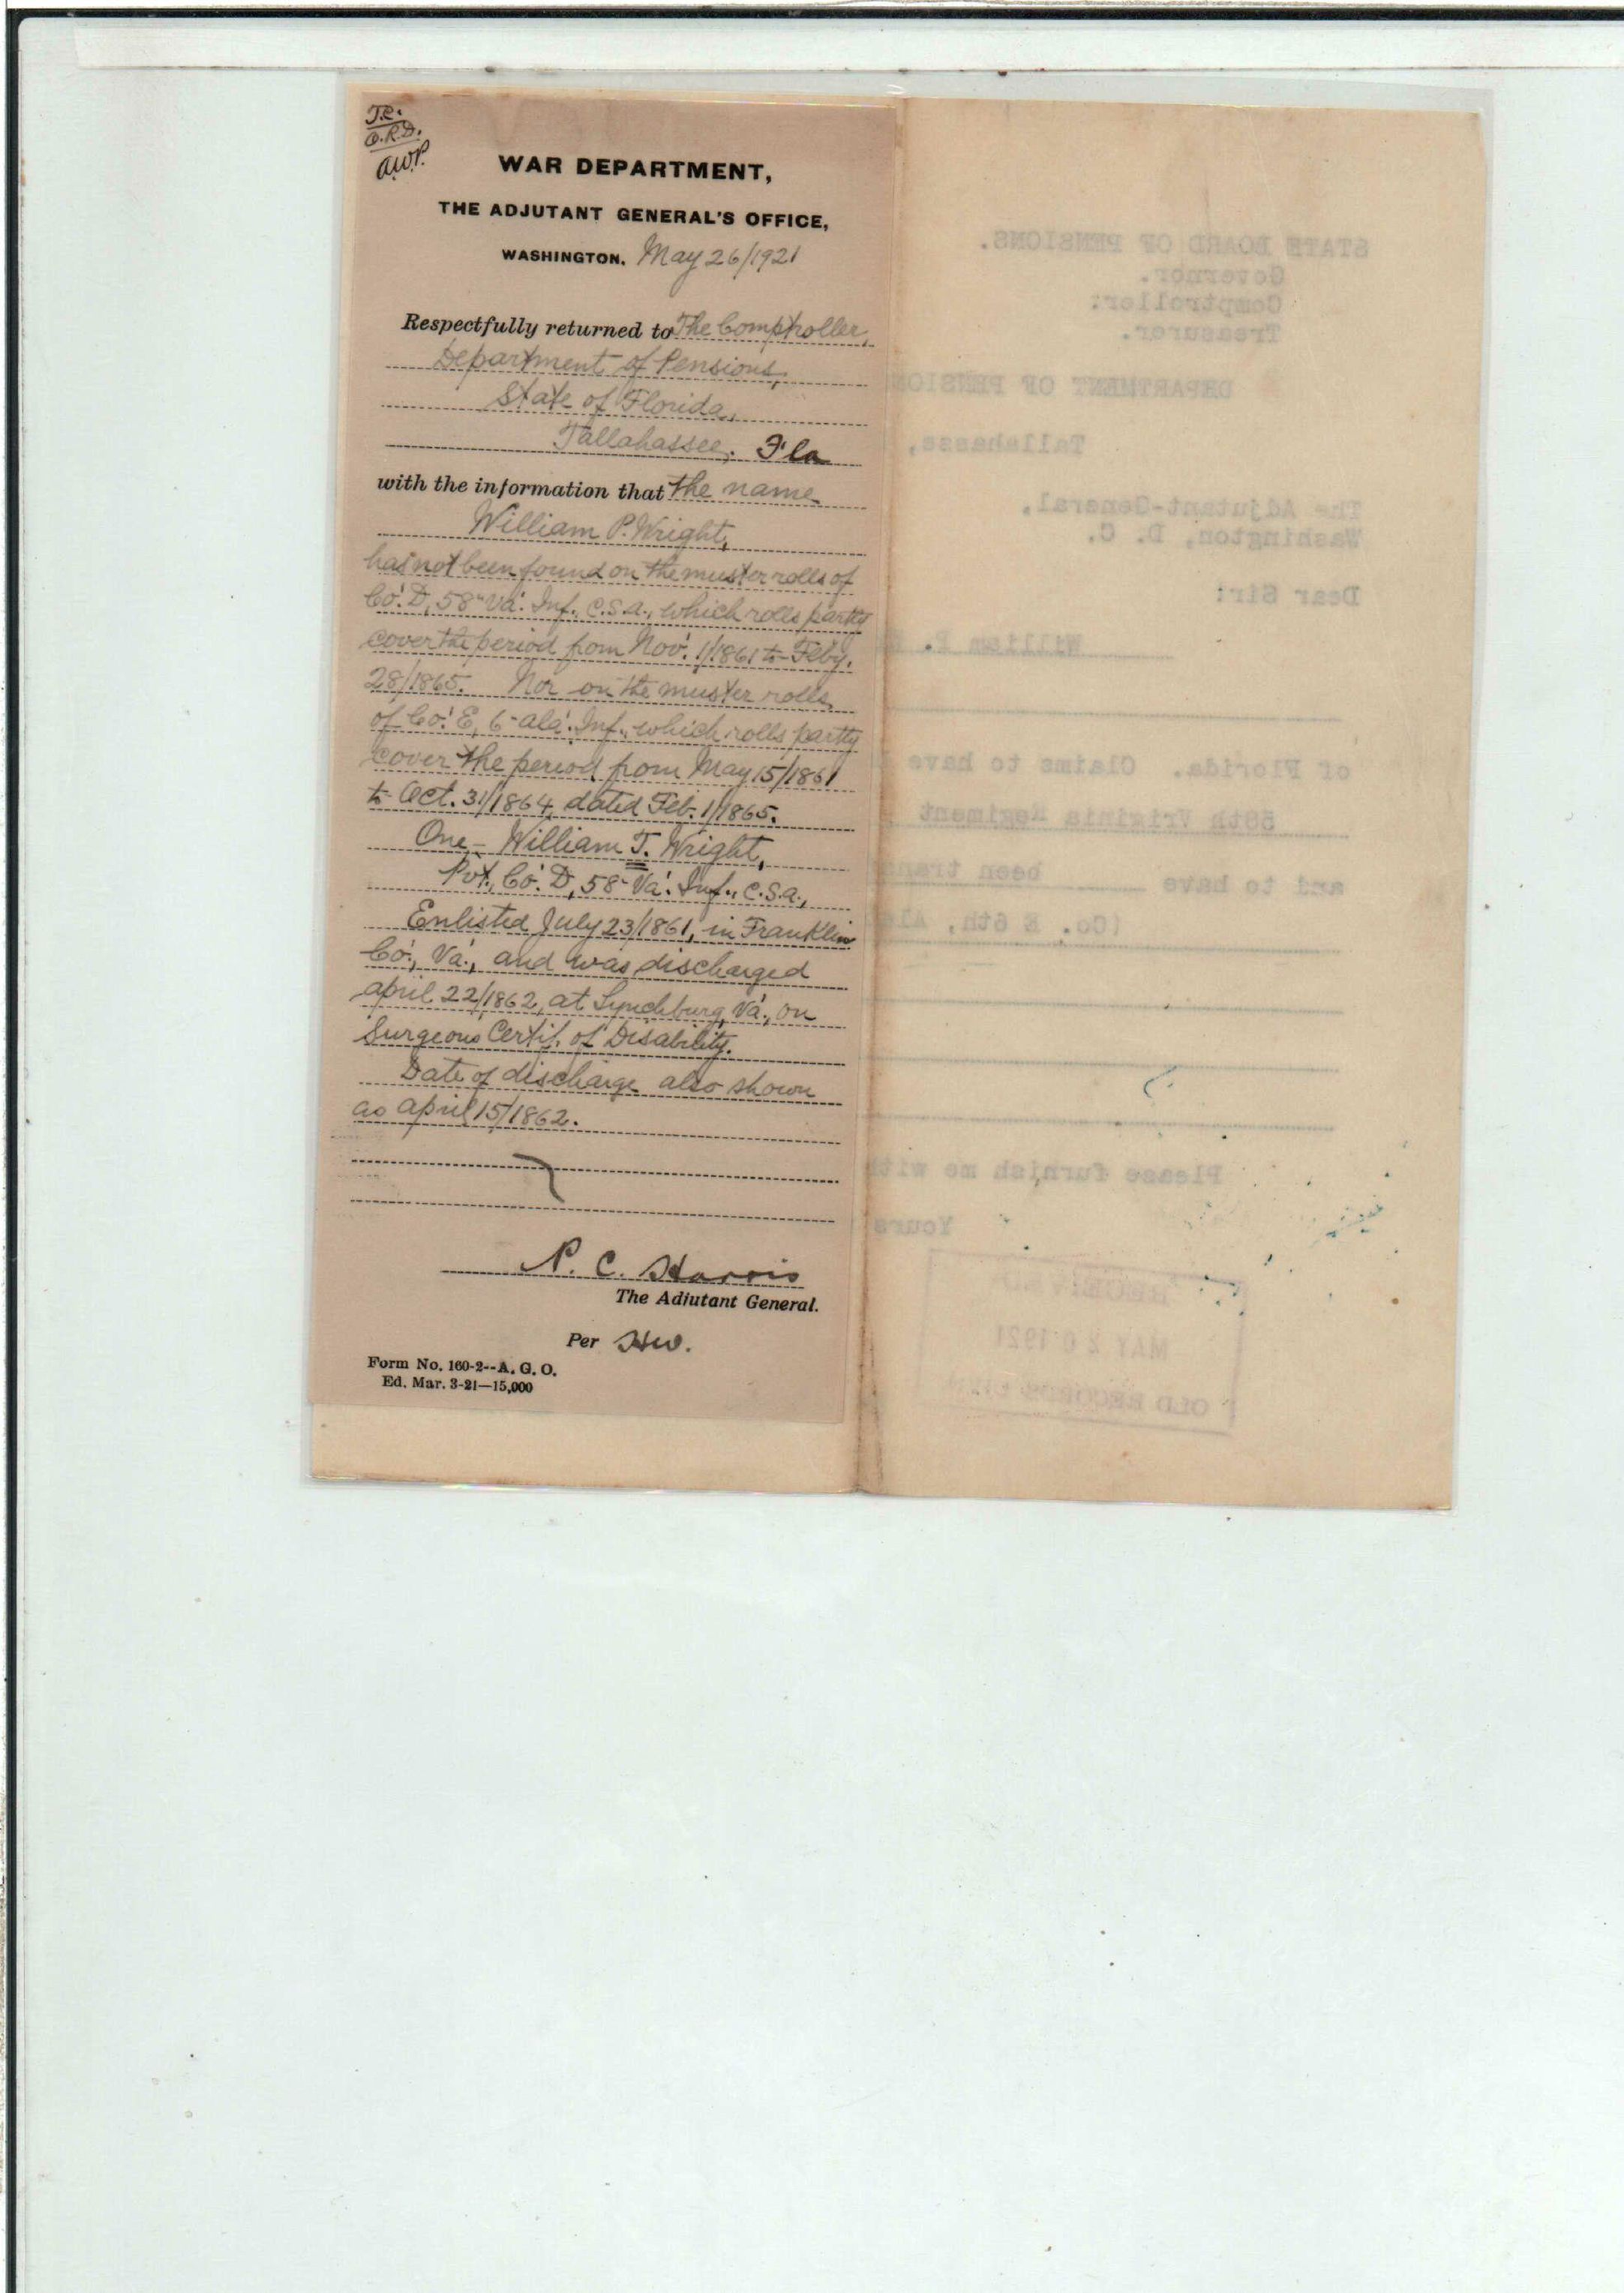 J.R.
O.R.D.
A.W.P.
WAR DEPARTMENT,
THE ADJUTANT GENERAL'S OFFICE,
WASHINGTON. May 26/1921
Respectfully returned to The Comptroller,
Department of Pensions,
State of Florida,
Tallahassee, Fla
with the information that the name
William P. Wright,
has not been found on the muster rolls of
Co. D, 58" Va. Inf., C.S.A., which rolls partly
cover the period from Nov. 1/1861 to Feby.
28/1865. Nor on the muster rolls
of Co. E, 6 Ala. Inf., which rolls partly
cover the period from May 15/1861
to Oct. 31/1864, dated Feb. 1/1865.
One - William T. Wright,
Pvt., Co. D, 58 Va. Inf., C.S.A.,
Enlisted July 23/1861, in Franklin
Co., Va., and was discharged
April 22/1862, at Lynchburg, Va., on
Surgeons Certif. of Disability.
Date of discharge also shown
as April 15/1862.
P. C. Harris
The Adjutant General.
Per HW.
Form No. 160-2--A. G. O.
Ed. Mar. 3-21—15,000
STATE BOARD OF PENSIONS.
Governor.
Comptroller:
Treasurer.
DEPARTMENT OF PENSION
Tallahasse,
The Adjutant-General,
Washington, D. C.
Dear Sir:
William P.
of Florida. Claims to have
58th Vriginia Regiment
and to have been trans
(Co. E 6th, Ala
Please furnish me with
Yours
RECEIVED
MAY 20 1921
OLD RECORDS